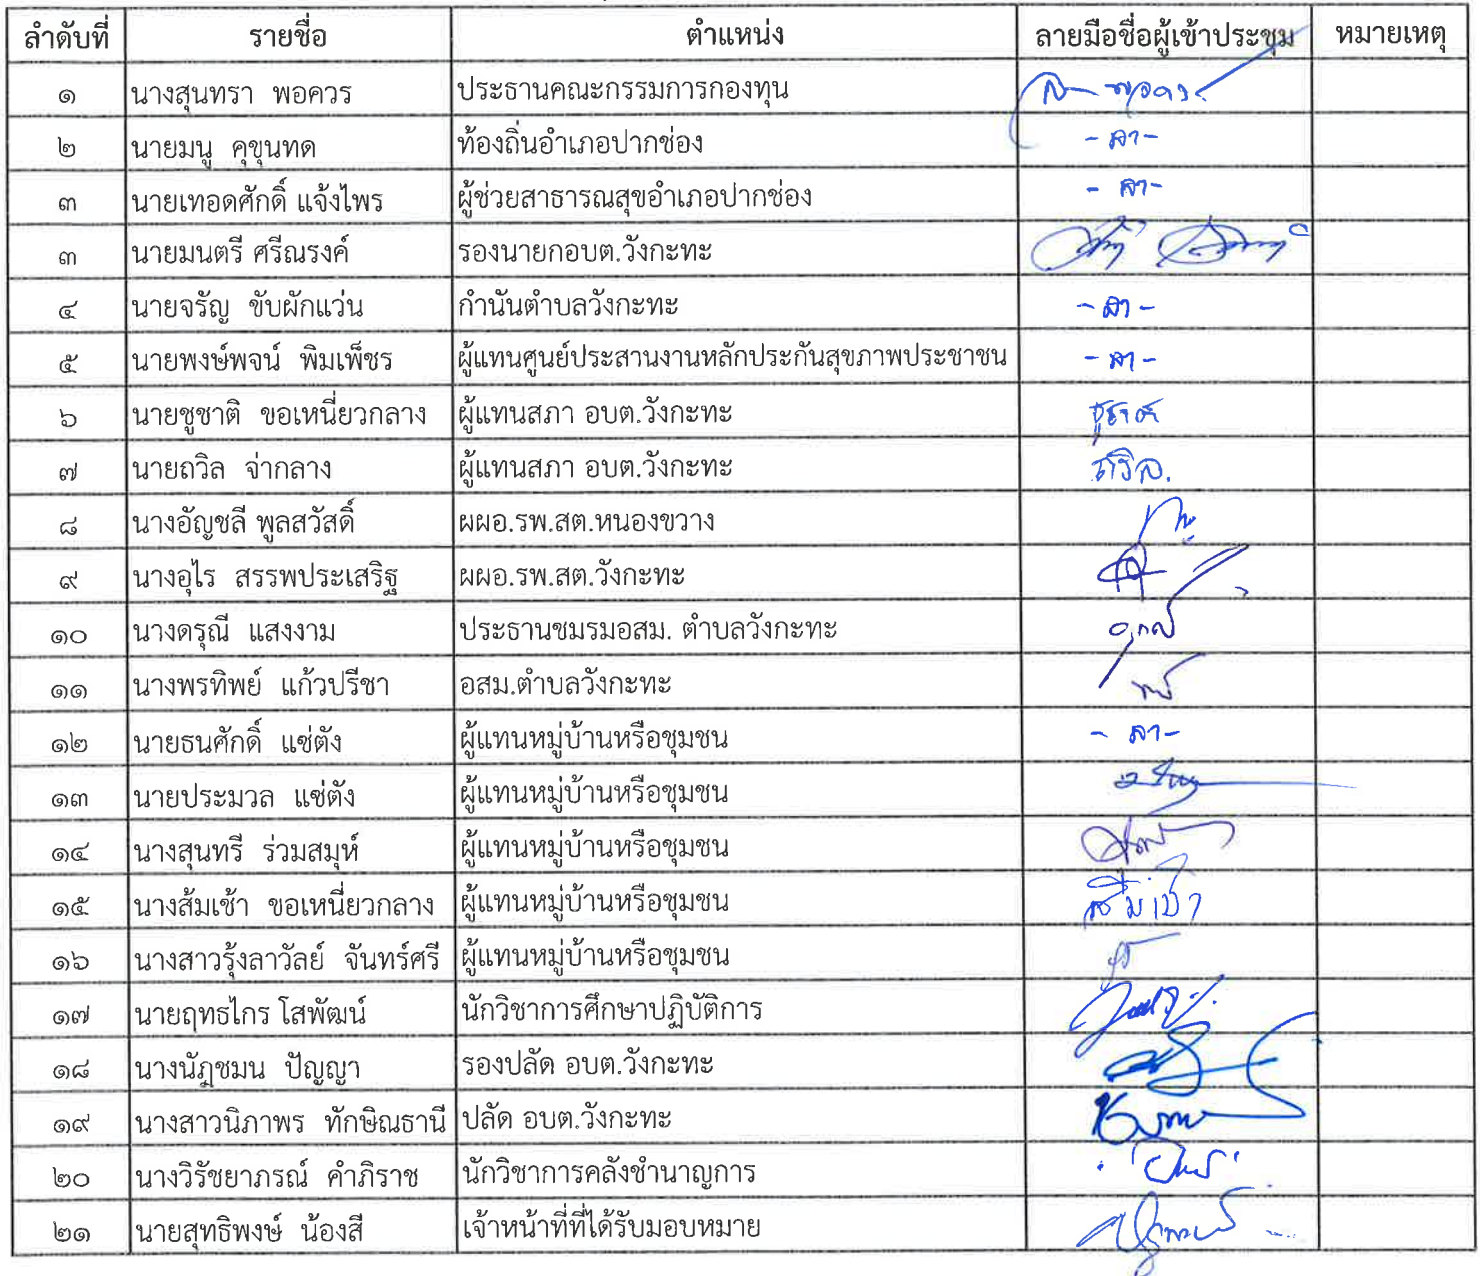 ลำดับที่ รายชื่อ ตำแหน่ง ลายมือชื่อผู้เข้าประชุม หมายเหตุ
๑ นางสุนทรา พอควร ประธานคณะกรรมการกองทุน
๒ นายมนู คุขุนทด ท้องถิ่นอำเภอปากช่อง - ลา -
๓ นายเทอดศักดิ์ แจ้งไพร ผู้ช่วยสาธารณสุขอำเภอปากช่อง - ลา -
๓ นายมนตรี ศรีณรงค์ รองนายกอบต.วังกะทะ
๔ นายจรัญ ขับผักแว่น กำนันตำบลวังกะทะ - ลา -
๕ นายพงษ์พจน์ พิมเพ็ชร ผู้แทนศูนย์ประสานงานหลักประกันสุขภาพประชาชน - ลา -
๖ นายชูชาติ ขอเหนี่ยวกลาง ผู้แทนสภา อบต.วังกะทะ ชูชาติ
๗ นายถวิล จ่ากลาง ผู้แทนสภา อบต.วังกะทะ ถวิล.
๘ นางอัญชลี พูลสวัสดิ์ ผผอ.รพ.สต.หนองขวาง
๙ นางอุไร สรรพประเสริฐ ผผอ.รพ.สต.วังกะทะ
๑๐ นางดรุณี แสงงาม ประธานชมรมอสม. ตำบลวังกะทะ
๑๑ นางพรทิพย์ แก้วปรีชา อสม.ตำบลวังกะทะ
๑๒ นายธนศักดิ์ แซ่ตัง ผู้แทนหมู่บ้านหรือชุมชน - ลา -
๑๓ นายประมวล แซ่ตัง ผู้แทนหมู่บ้านหรือชุมชน
๑๔ นางสุนทรี ร่วมสมุห์ ผู้แทนหมู่บ้านหรือชุมชน
๑๕ นางส้มเช้า ขอเหนี่ยวกลาง ผู้แทนหมู่บ้านหรือชุมชน ส้มเช้า
๑๖ นางสาวรุ้งลาวัลย์ จันทร์ศรี ผู้แทนหมู่บ้านหรือชุมชน
๑๗ นายฤทธไกร โสพัฒน์ นักวิชาการศึกษาปฏิบัติการ
๑๘ นางนัฎชมน ปัญญา รองปลัด อบต.วังกะทะ
๑๙ นางสาวนิภาพร ทักษิณธานี ปลัด อบต.วังกะทะ
๒๐ นางวิรัชยาภรณ์ คำภิราช นักวิชาการคลังชำนาญการ
๒๑ นายสุทธิพงษ์ น้องสี เจ้าหน้าที่ที่ได้รับมอบหมาย